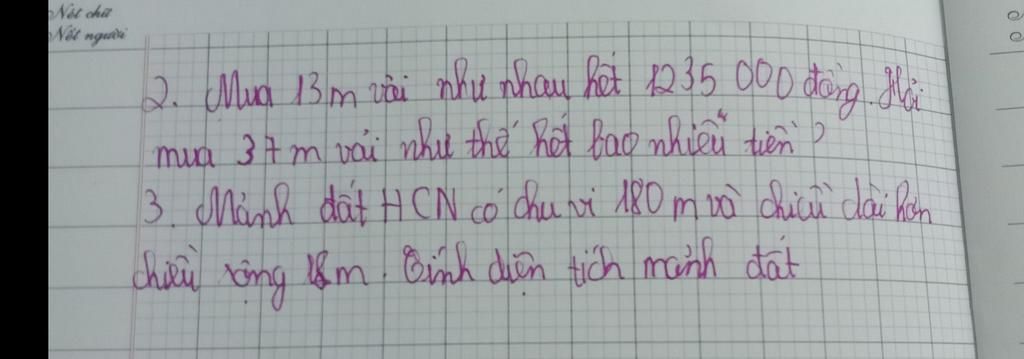 Nét chữ
Nét người
2. Mua 13m vải như nhau hết 1235 000 đồng. Hỏi
mua 37m vải như thế hết bao nhiêu tiền?
3. Mảnh đất HCN có chu vi 180m và chiều dài hơn
chiều rộng 18m. Tính diện tích mảnh đất